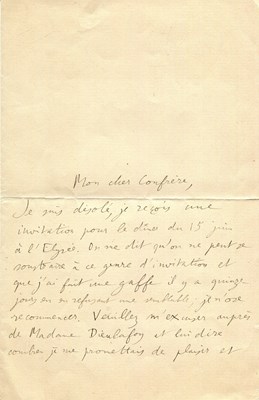 Mon cher Confrère,
Je suis désolé, je reçois une
invitation pour le dîner du 15 juin
à l'Elysée. On me dit qu'on ne peut se
soustraire à ce genre d'invitation et
que j'ai fait une gaffe il y a quinze
jours en en refusant une semblable, je n'ose
recommencer. Veuillez m'excuser auprès
de Madame Dieulafoy et lui dire
combien je me promettais de plaisir et